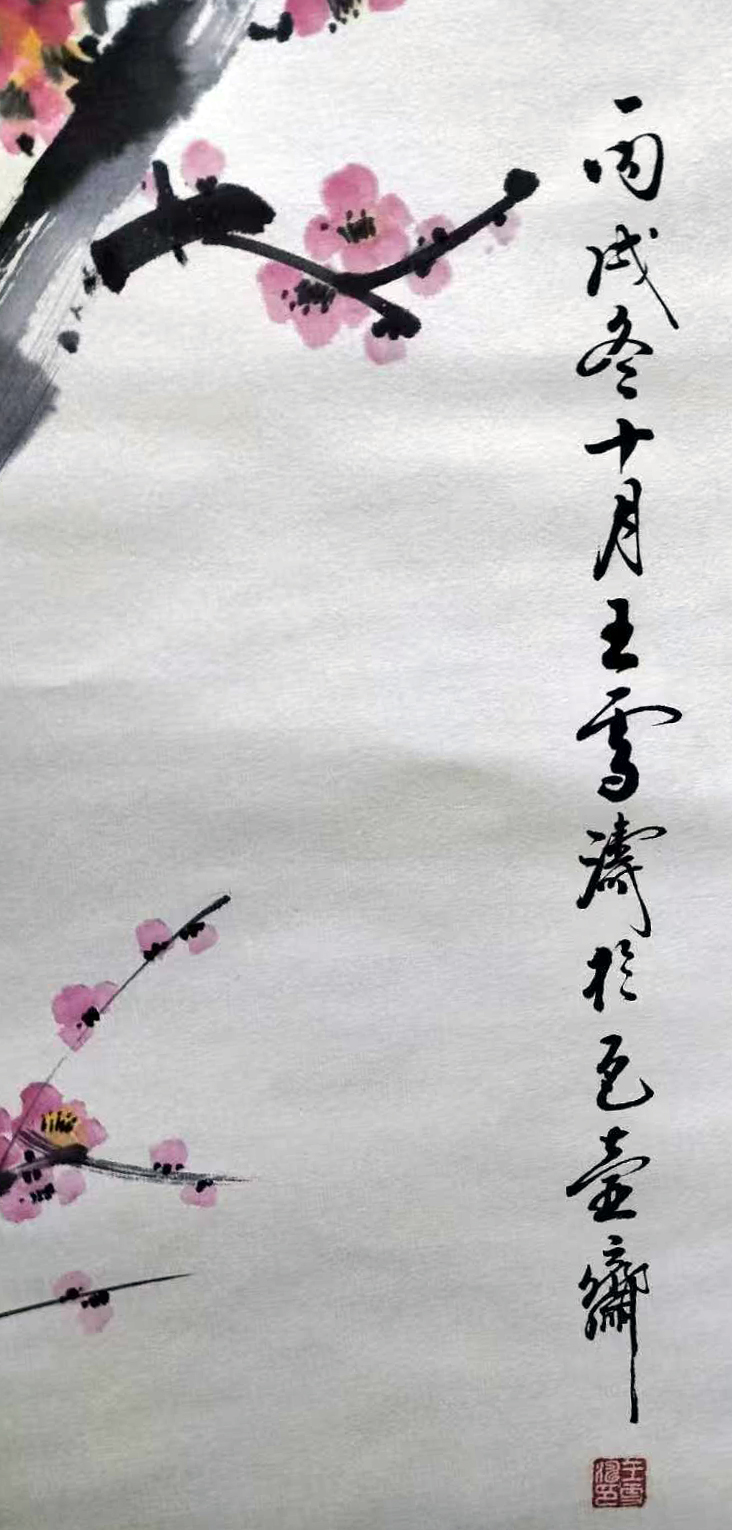 丙戌冬十月王雪濤於瓦壷齋
王雪濤印